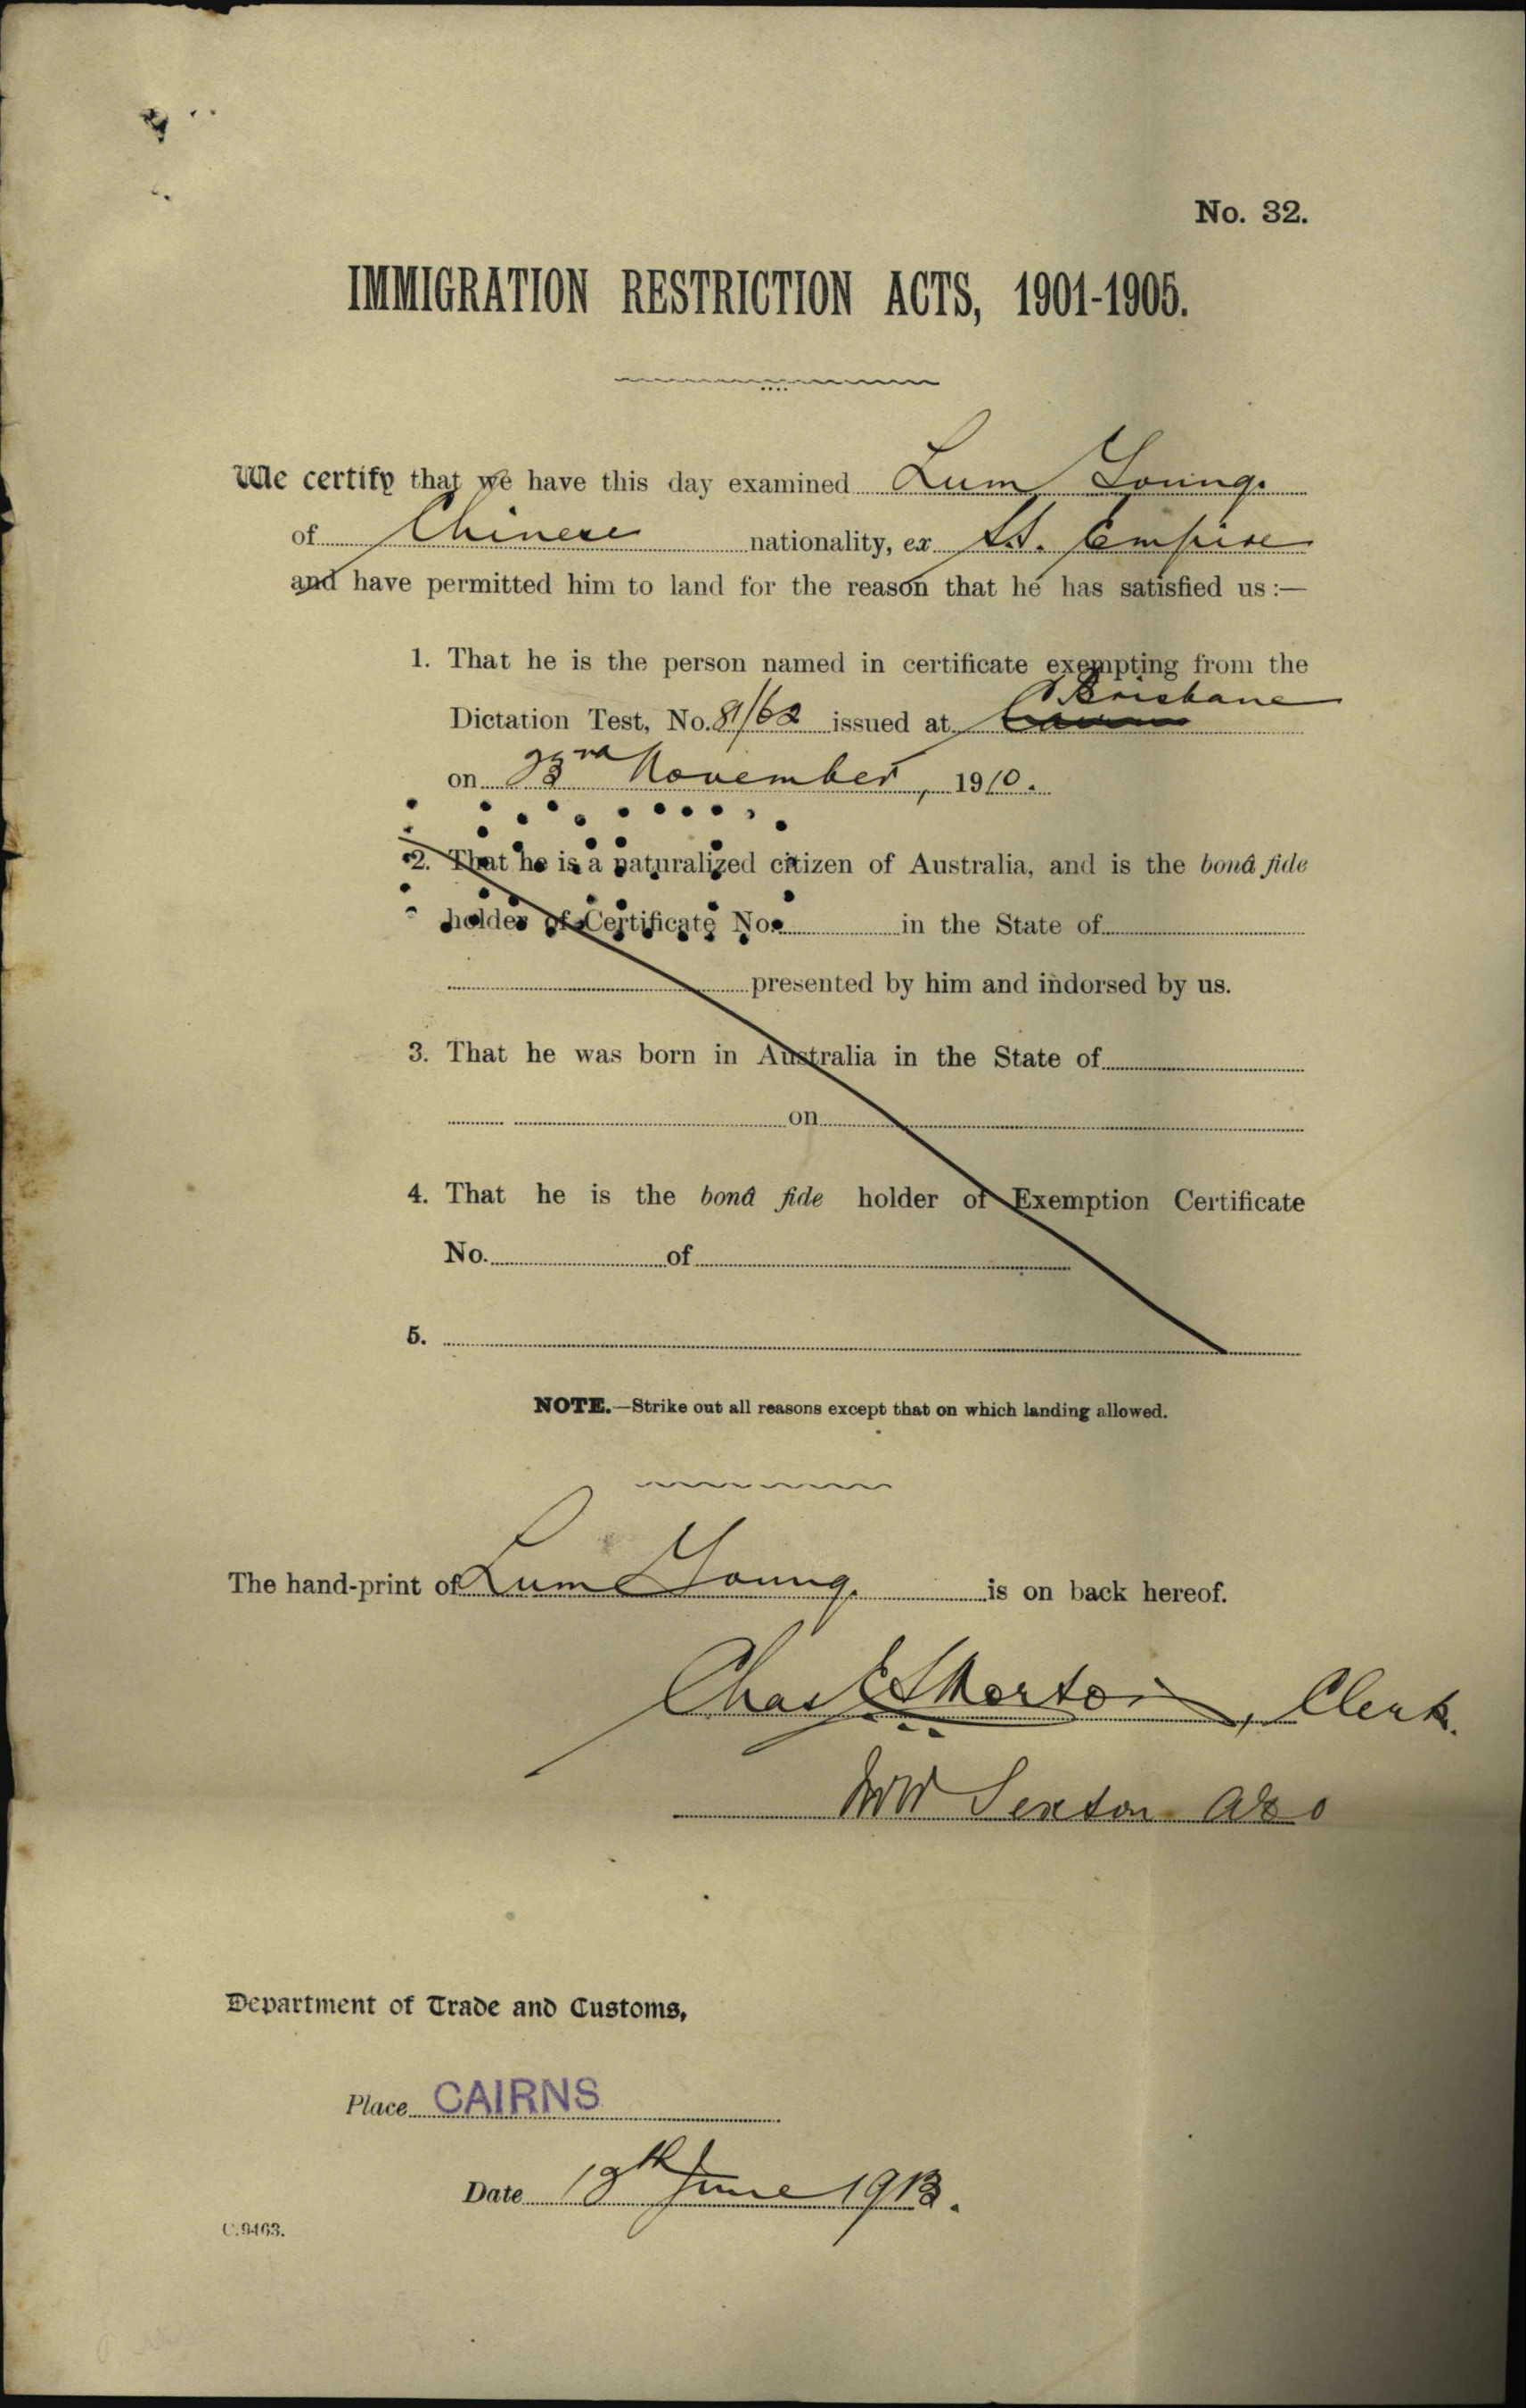 No. 32.
IMMIGRATION RESTRICTION ACTS, 1901-1905.
We certify that we have this day examined Lum Young.
of Chinese nationality, ex S.S. Empire
and have permitted him to land for the reason that he has satisfied us :—
1. That he is the person named in certificate exempting from the
Brisbane
Dictation Test, No. 81/62 issued at
on 23rd November, 1910.
2. That he is a naturalized citizen of Australia, and is the bonâ fide
holder of Certificate No. in the State of
presented by him and indorsed by us.
3. That he was born in Australia in the State of
on
4. That he is the bonâ fide holder of Exemption Certificate
No. of
5.
NOTE.—Strike out all reasons except that on which landing allowed.
The hand-print of Lum Young. is on back hereof.
Chas Morton, Clerk.
Sexton
Department of Trade and Customs,
Place CAIRNS
Date 18th June 1913.
C.9463.